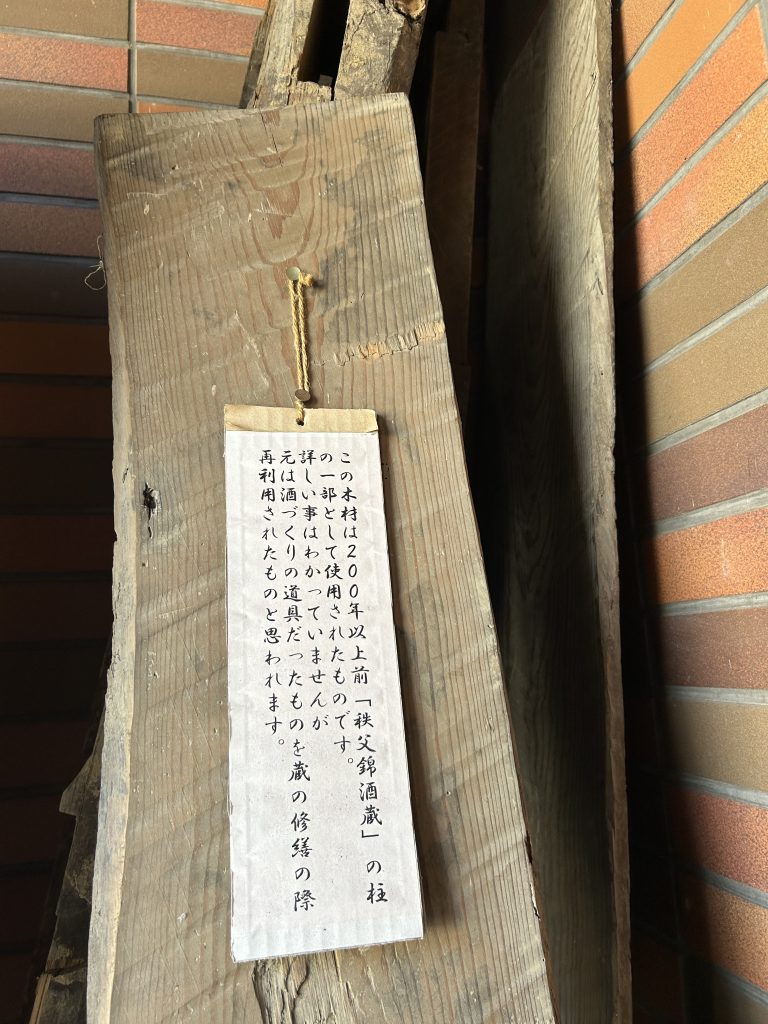 この木材は200年以上前「秩父錦酒蔵」の柱
の一部として使用されたものです。
詳しい事はわかっていませんが
元は酒づくりの道具だったものを蔵の修繕の際
再利用されたものと思われます。